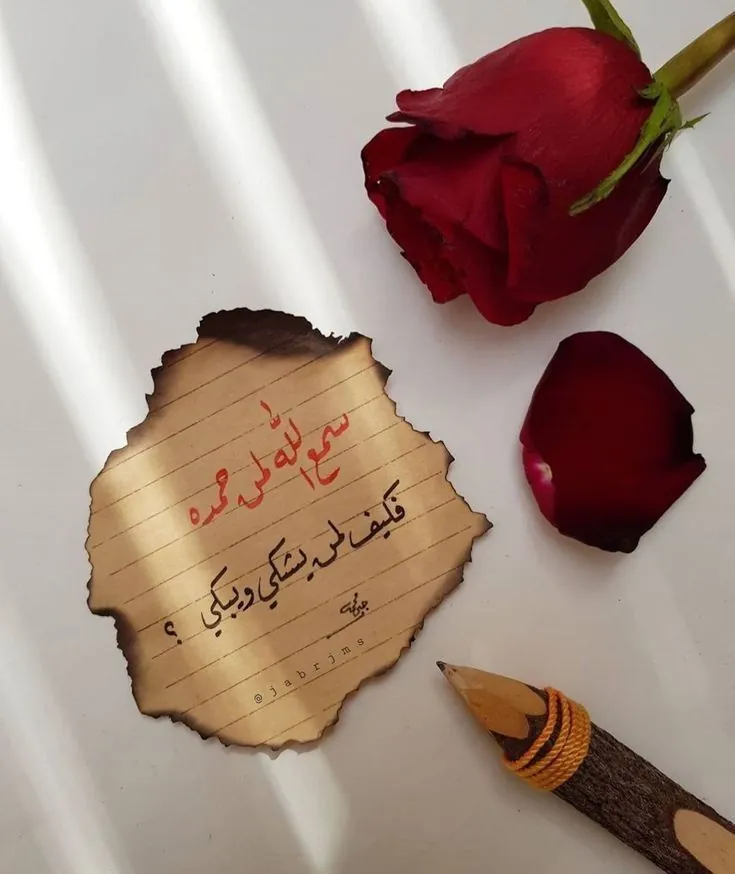 سمع الله لمن حمده
فكيف لمن يشكي ويبكي ؟
@jabrjms